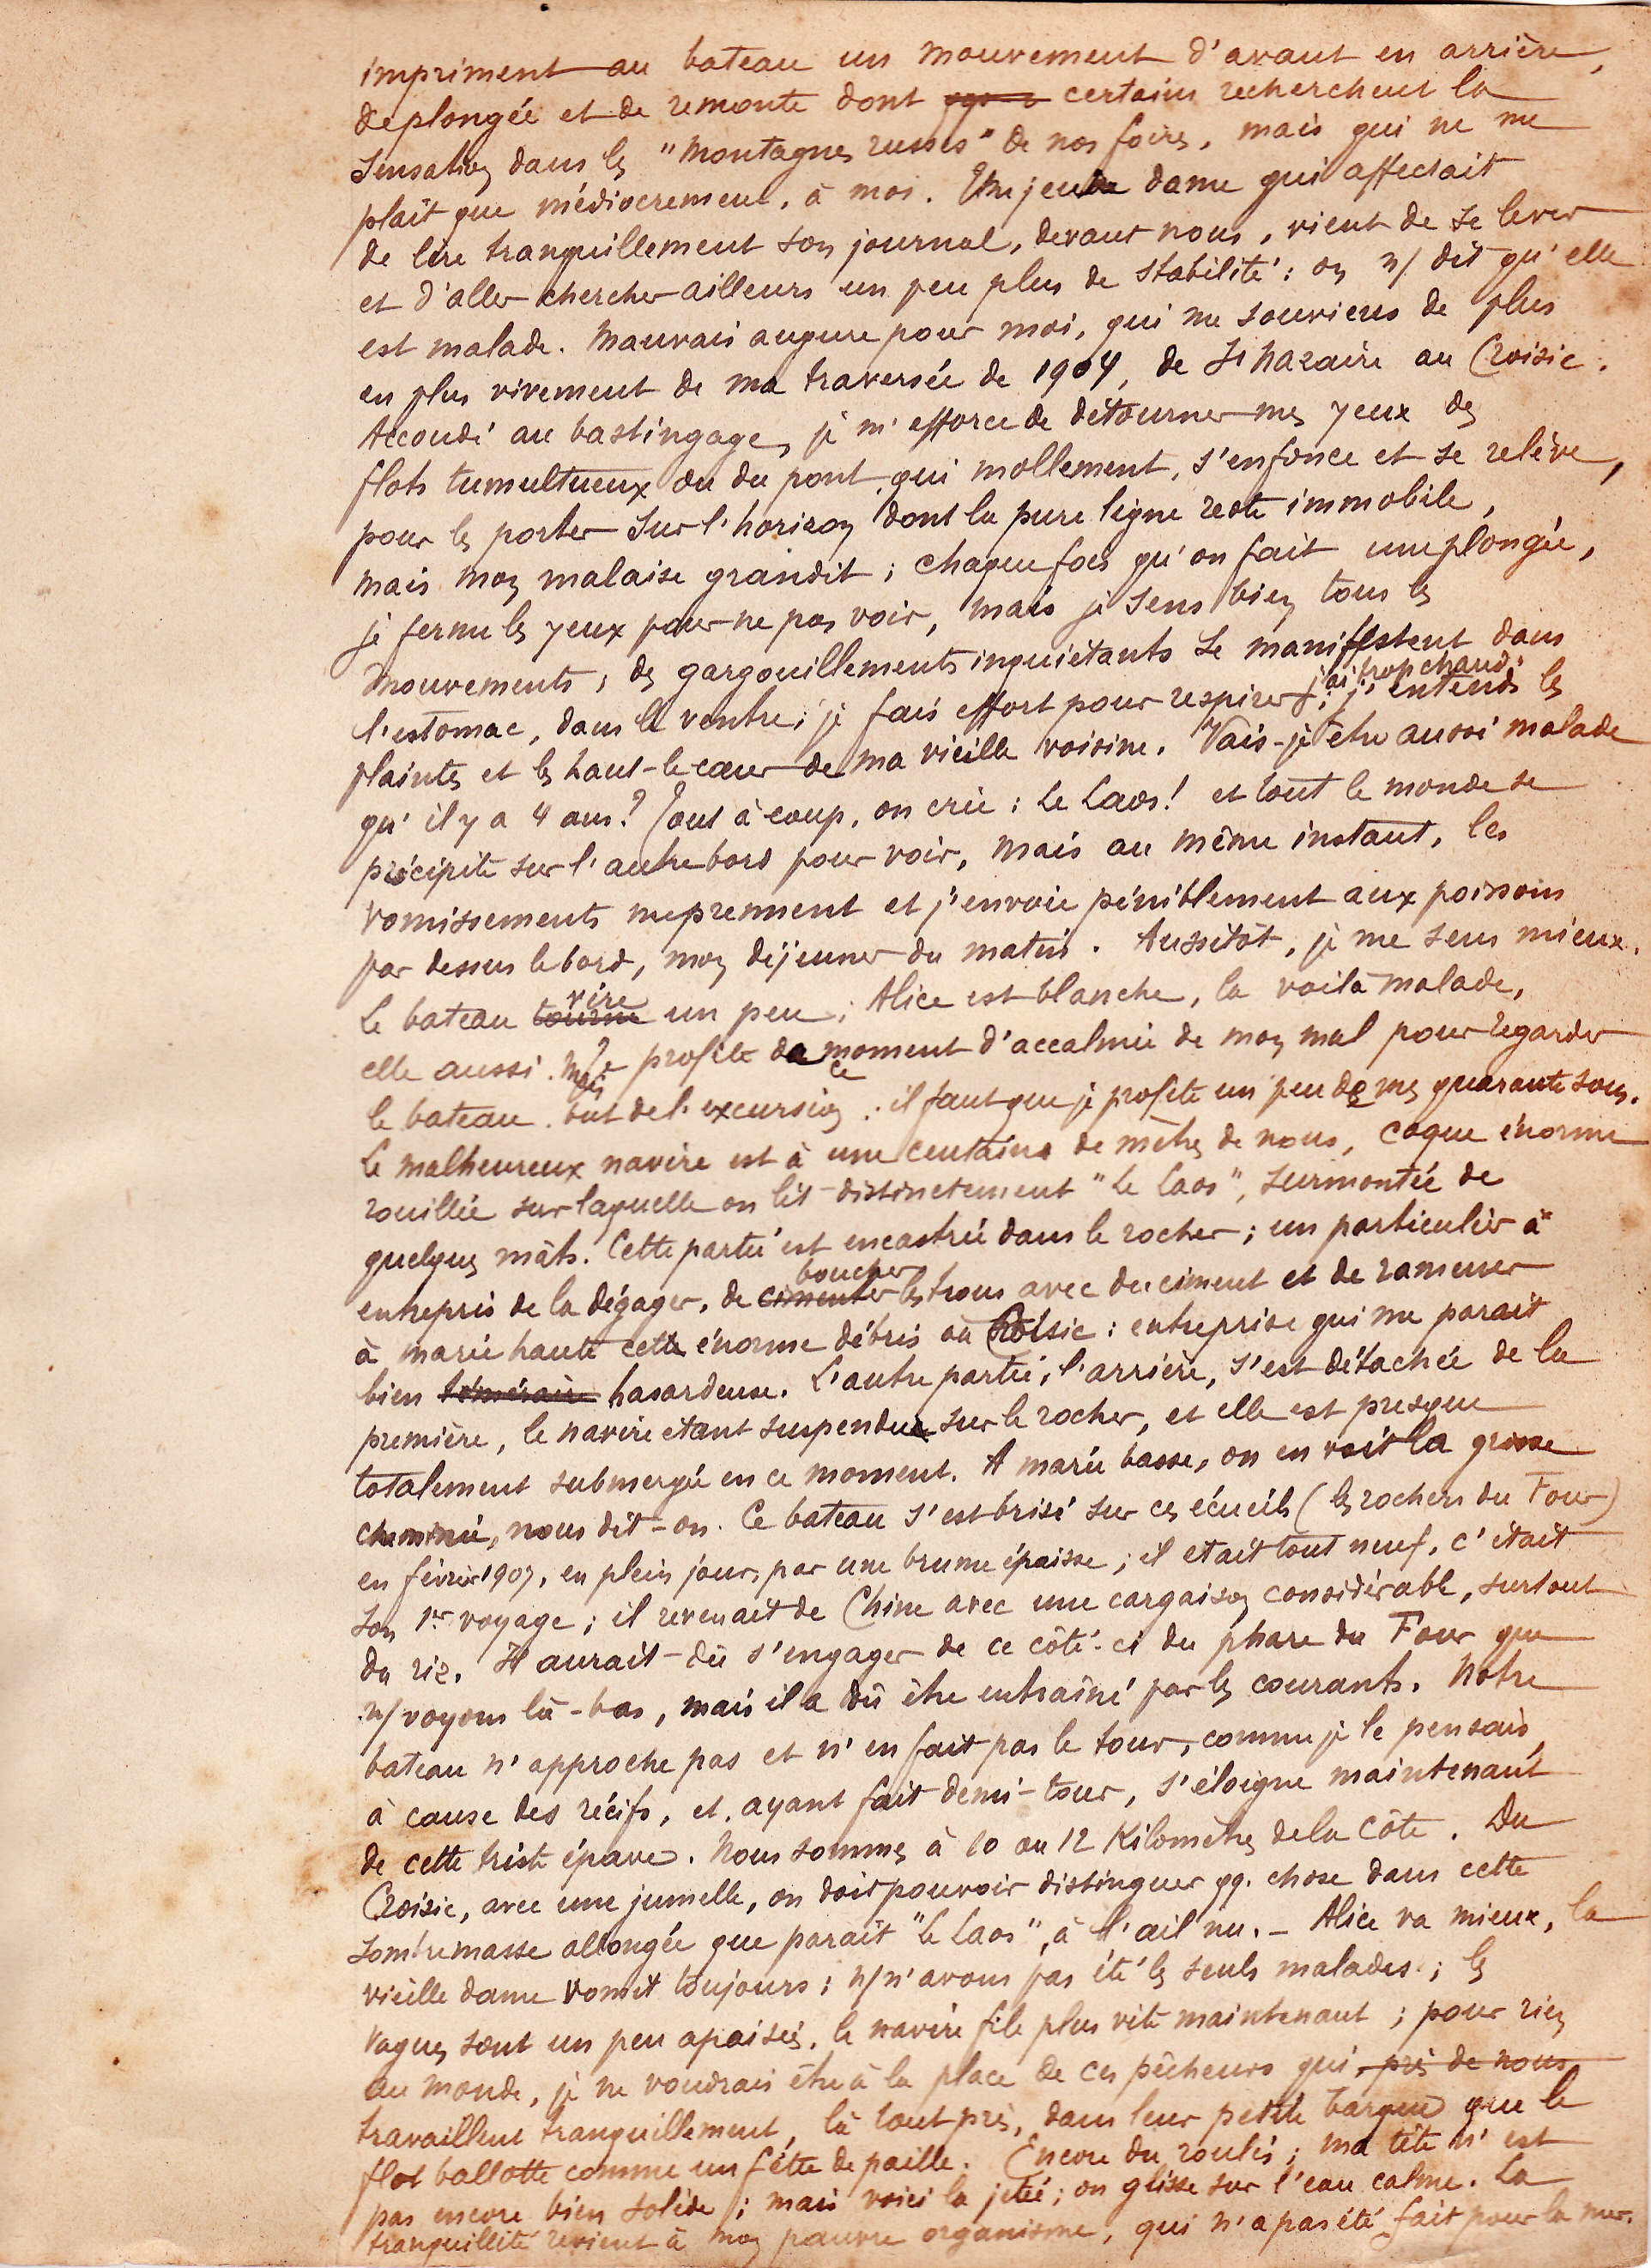 impriment au bateau un mouvement d'avant en arrière,
de plongée et de remonte dont certains recherchent la
sensation dans les "montagnes russes" de nos foires, mais qui ne me
plaît que médiocrement, à moi. Une jeune dame qui affectait
de lire tranquillement son journal, devant nous, vient de se lever
et d'aller chercher ailleurs un peu plus de stabilité : on n/ dit qu'elle
est malade. Mauvais augure pour moi, qui me souviens de plus
en plus vivement de ma traversée de 1904, de St Nazaire au Croisic.
Accoudé au bastingage, je m'efforce de détourner mes yeux des
flots tumultueux ou du pont qui mollement, s'enfonce et se relève,
pour les porter sur l'horizon dont la pure ligne reste immobile,
mais mon malaise grandit ; chaque fois qu'on fait une plongée,
je ferme les yeux pour ne pas voir, mais je sens bien tous les
mouvements ; des gargouillements inquiétants se manifestent dans
l'estomac, dans le ventre ; je fais effort pour respirer ; j'ai trop chaud ; j'entends les
plaintes et les haut-le-cœur de ma vieille voisine. Vais-je être aussi malade
qu'il y a 4 ans ? Tout à coup, on crie : Le Laos ! et tout le monde se
précipite sur l'autre bord pour voir, mais au même instant, les
vomissements me prennent et j'envoie péniblement aux poissons
par dessus le bord, mon déjeuner du matin. Aussitôt, je me sens mieux.
Le bateau tourne vire un peu ; Alice est blanche, la voilà malade,
elle aussi. Mais je profite de ce moment d'accalmie de mon mal pour regarder
le bateau, but de l'excursion : il faut que je profite un peu de mes quarante sous.
Le malheureux navire est à une centaine de mètres de nous, coque énorme
rouillée sur laquelle on lit distinctement "Le Laos", surmontée de
quelques mâts. Cette partie est encastrée dans le rocher ; un particulier a
entrepris de la dégager, de cimenter boucher les trous avec du ciment et de ramener
à marée haute cette énorme débris au Croisic : entreprise qui me paraît
bien téméraire hasardeuse. L'autre partie, l'arrière, s'est détachée de la
première, le navire étant suspendu sur le rocher, et elle est presque
totalement submergée en ce moment. A marée basse, on en voit la grosse
cheminée, nous dit-on. Ce bateau s'est brisé sur ces écueils (les rochers du Four)
en février 1907, en plein jour, par une brume épaisse ; il etait tout neuf, c'était
son 1er voyage ; il revenait de Chine avec une cargaison considérable, surtout
du riz. Il aurait dû s'engager de ce côté-ci du phare du Four que
n/ voyons là-bas, mais il a dû être entraîné par les courants. Notre
bateau n'approche pas et n'en fait pas le tour, comme je le pensais,
à cause des récifs, et, ayant fait demi-tour, s'éloigne maintenant
de cette triste épave. Nous sommes à 10 ou 12 Kilomètres de la Côte. Du
Croisic, avec une jumelle, on doit pouvoir distinguer qq. chose dans cette
sombre masse allongée que paraît "Le Laos", à l'œil nu. – Alice va mieux, la
vieille dame vomit toujours ; n/ n'avons pas été les seuls malades ; les
vagues sont un peu apaisées, le navire file plus vite maintenant ; pour rien
au monde, je ne voudrais être à la place de ces pêcheurs qui près de nous
travaillent tranquillement, là tout près, dans leur petite barque que le
flot ballotte comme un fétu de paille. Encore du roulis ; ma tête n'est
pas encore bien solide ; mais voici la jetée ; on glisse sur l'eau calme. La
tranquillité revient à mon pauvre organisme, qui n'a pas été fait pour la mer.